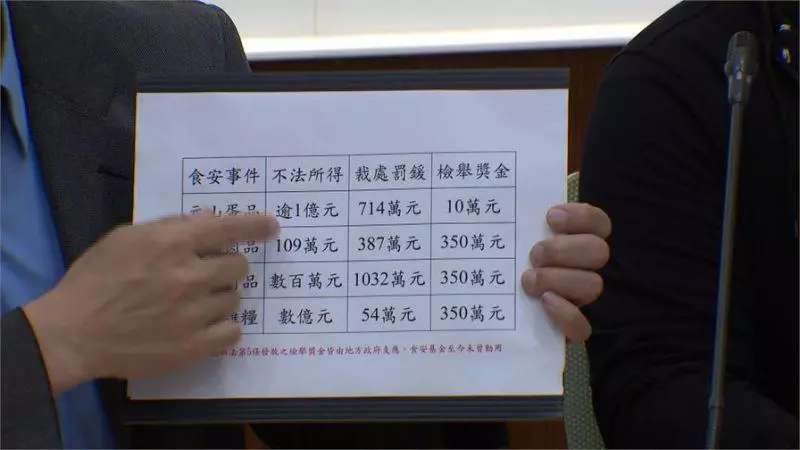 食安事件 不法所得 裁處罰鍰 檢舉獎金
元山蛋品 逾1億元 714萬元 10萬元
品 109萬元 387萬元 350萬元
品 數百萬元 1032萬元 350萬元
雜糧 數億元 54萬元 350萬元
辦法第5條發放之檢舉獎金皆由地方政府支應，食安基金至今未曾動用